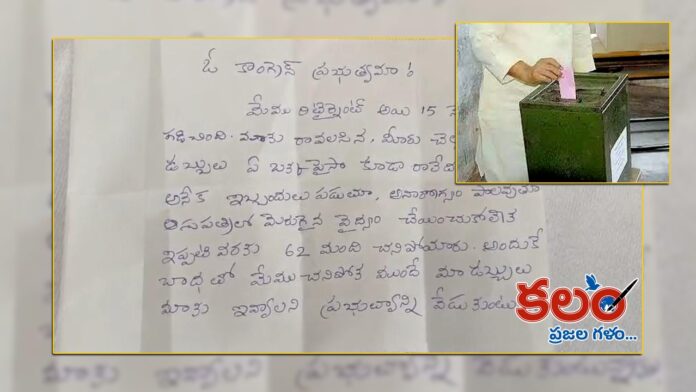 ఓ కాంగ్రెస్ ప్రభుత్వమా!
మేము రిటైర్మెంట్ అయి 15 నె
గడిచింది. మాకు రావలసిన, మీరు చెల
డబ్బులు ఏ ఒక్క పైసా కూడా రాలేద
అనేక ఇబ్బందులు పడుతూ, అనారోగ్యం పాలవుతూ
ఆసుపత్రిలో మెరుగైన వైద్యం చేయించుకోలేక
ఇప్పటి వరకు 62 మంది చనిపోయారు. అందుకే
బాధతో మేము చనిపోక ముందే మా డబ్బులు
మాకు ఇవ్వాలని ప్రభుత్వాన్ని వేడుకుంటు
కలం
ప్రజల గళం...